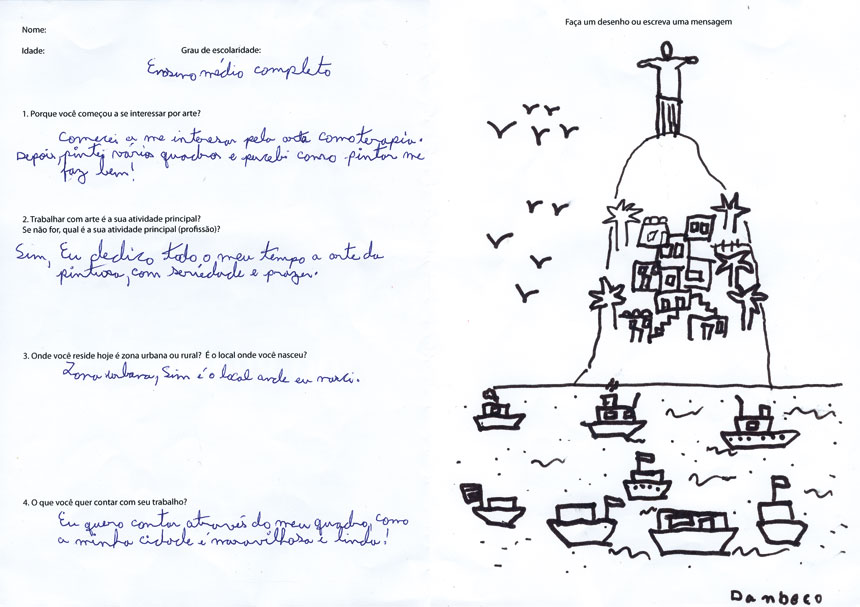 Nome:
Idade: Grau de escolaridade:
Ensino médio completo
1. Porque você começou a se interessar por arte?
Comecei a me interesar pela arte como terapia.
Depois, pintei vários quadros e percebi como pintar me
faz bem!
2. Trabalhar com arte é a sua atividade principal?
Se não for, qual é a sua atividade principal (profissão)?
Sim, Eu dedico todo o meu tempo a arte da
pintura, com seriedade e prazer.
3. Onde você reside hoje é zona urbana ou rural? É o local onde você nasceu?
Zona urbana, Sim é o local onde eu nasci.
4. O que você quer contar com seu trabalho?
Eu quero contar, através do meu quadro, como
a minha cidade é maravilhosa e linda!
Faça um desenho ou escreva uma mensagem
Danbeco